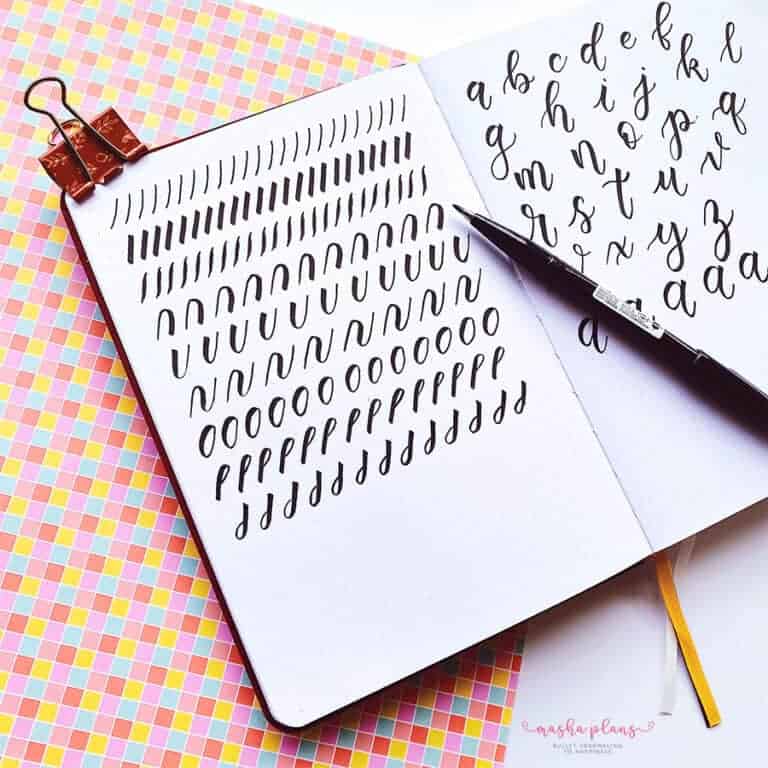 a b c d e f
g h i j k l
m n o p q
r s t u v
x y z
a a a a
masha plans
BULLET JOURNALING
TO HAPPINESS